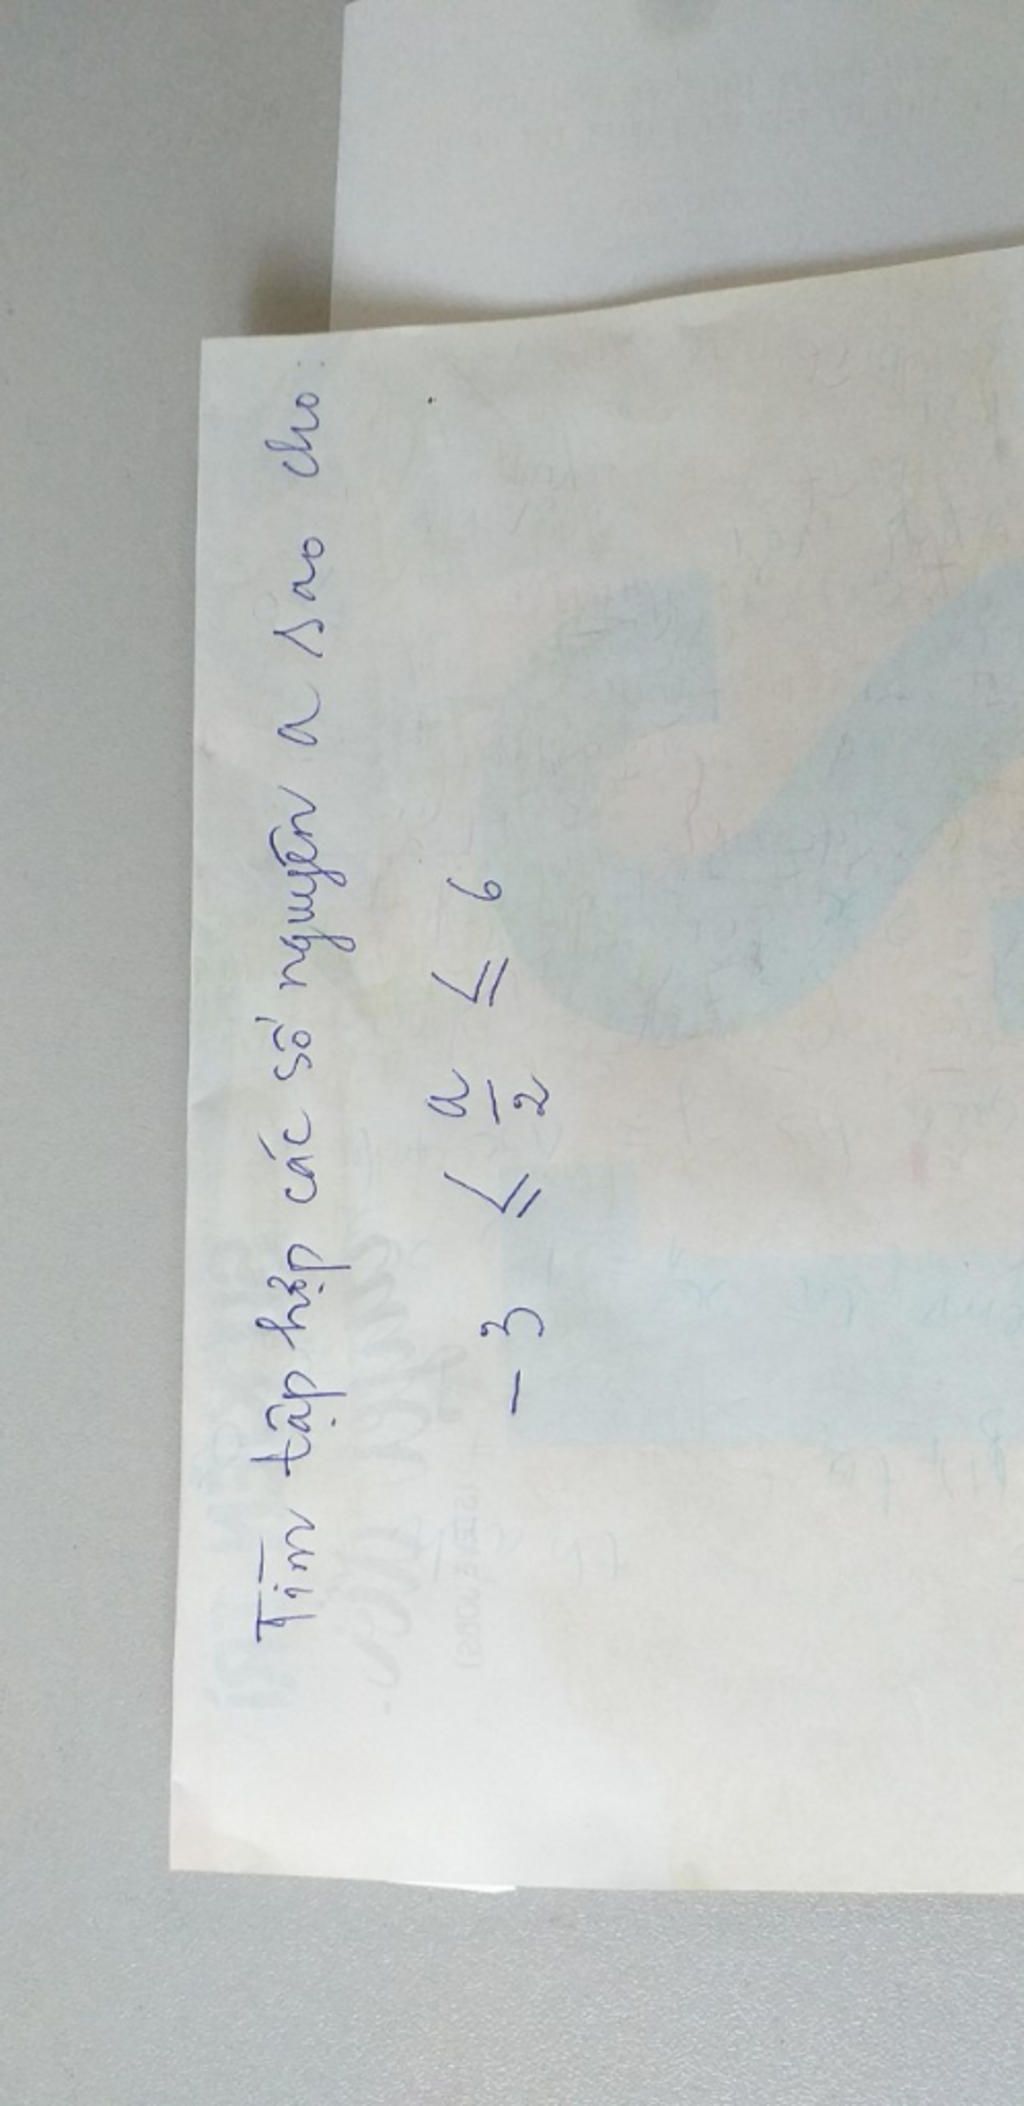 Tìm tập hợp các số nguyên a sao cho:
- 3 ≤ a/2 ≤ 6